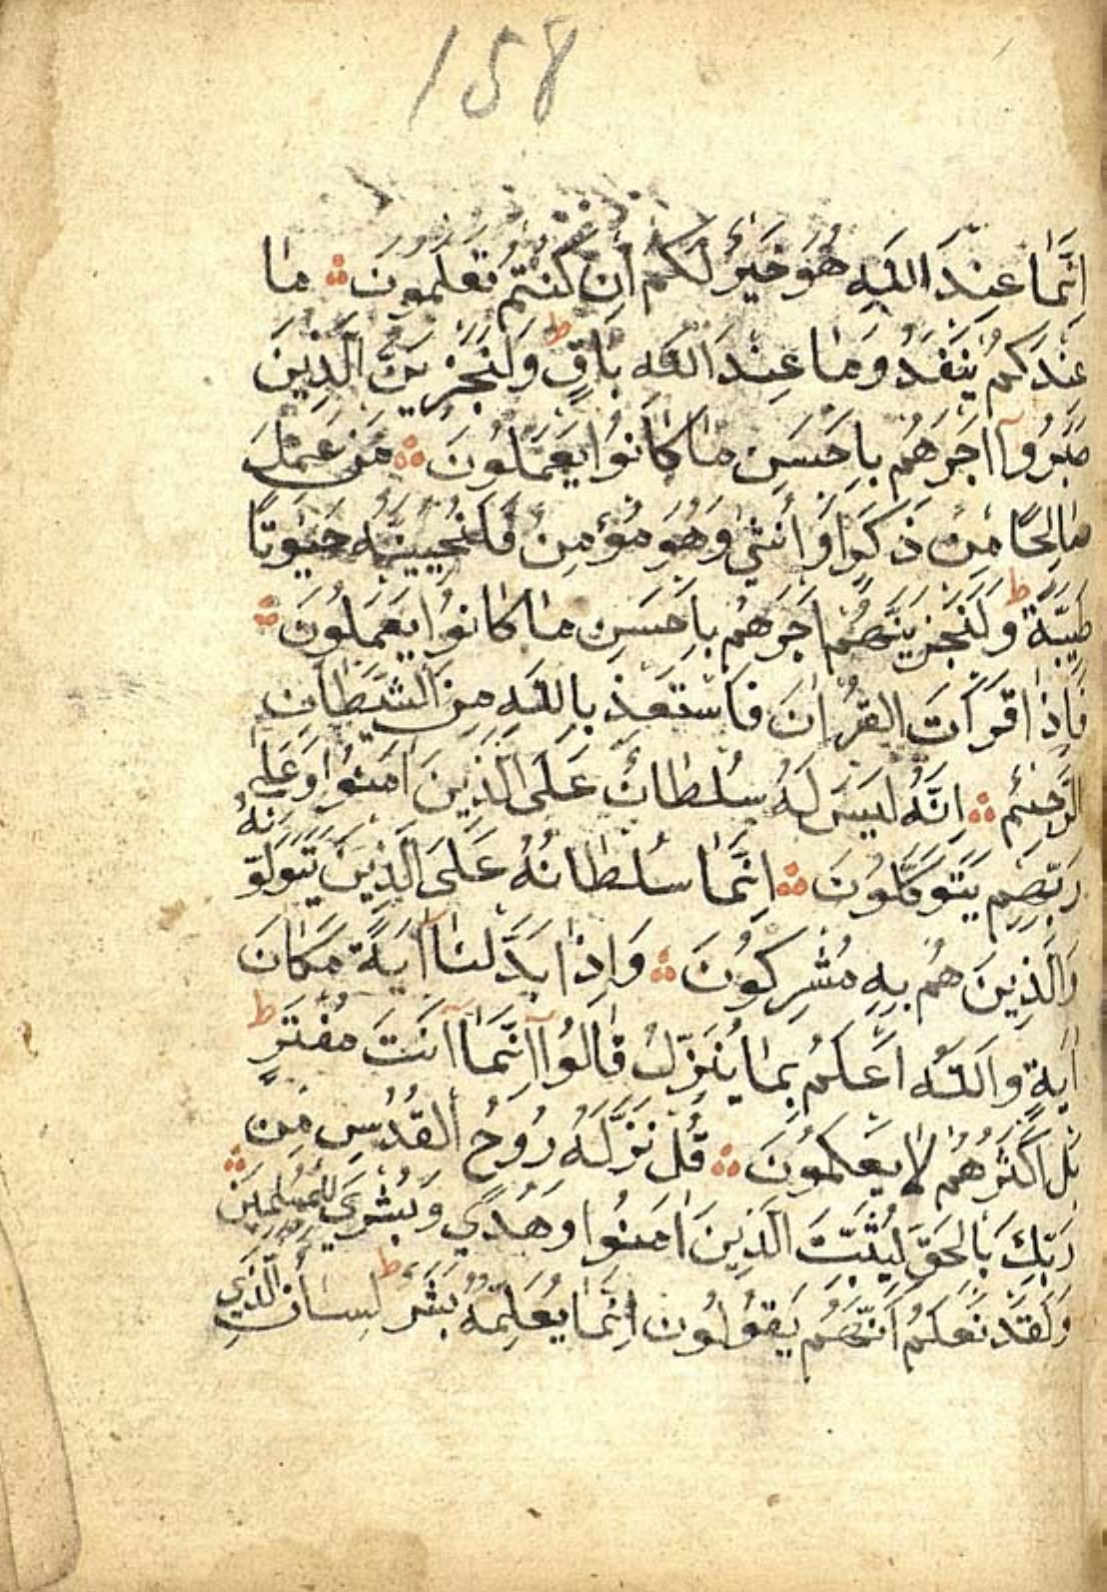 158
اِنَّمَا عِنْدَ اللّٰهِ هُوَ خَيْرٌ لَكُمْ اِنْ كُنْتُمْ تَعْلَمُونَ ۞ مَا
عِنْدَكُمْ يَنْفَدُ وَمَا عِنْدَ اللّٰهِ بَاقٍ ط وَلَنَجْزِيَنَّ الَّذِينَ
صَبَرُوآ اَجْرَهُمْ بِاَحْسَنِ مَا كَانُوا يَعْمَلُونَ ۞ مَنْ عَمِلَ
صَالِحًا مِنْ ذَكَرٍ اَوْ اُنْثٰي وَهُوَ مُؤْمِنٌ فَلَنُحْيِيَنَّهُ حَيٰوةً
طَيِّبَةً ط وَلَنَجْزِيَنَّهُمْ اَجْرَهُمْ بِاَحْسَنِ مَا كَانُوا يَعْمَلُونَ ۞
فَاِذَا قَرَاْتَ الْقُرْاٰنَ فَاسْتَعِذْ بِاللّٰهِ مِنَ الشَّيْطَانِ
الرَّجِيمِ ۞ اِنَّهُ لَيْسَ لَهُ سُلْطَانٌ عَلَى الَّذِينَ اٰمَنُوا وَعَلٰي
رَبِّهِمْ يَتَوَكَّلُونَ ۞ اِنَّمَا سُلْطَانُهُ عَلَى الَّذِينَ يَتَوَلَّوْنَهُ
وَالَّذِينَ هُمْ بِهِ مُشْرِكُونَ ۞ وَاِذَا بَدَّلْنَآ اٰيَةً مَكَانَ
اٰيَةٍ وَاللّٰهُ اَعْلَمُ بِمَا يُنَزِّلُ قَالُوآ اِنَّمَآ اَنْتَ مُفْتَرٍ ط
بَلْ اَكْثَرُهُمْ لَا يَعْلَمُونَ ۞ قُلْ نَزَّلَهُ رُوحُ الْقُدُسِ مِنْ
رَبِّكَ بِالْحَقِّ لِيُثَبِّتَ الَّذِينَ اٰمَنُوا وَهُدًي وَبُشْرٰي لِلْمُسْلِمِينَ ۞
وَلَقَدْ نَعْلَمُ اَنَّهُمْ يَقُولُونَ اِنَّمَا يُعَلِّمُهُ بَشَرٌ ط لِسَانُ الَّذِي